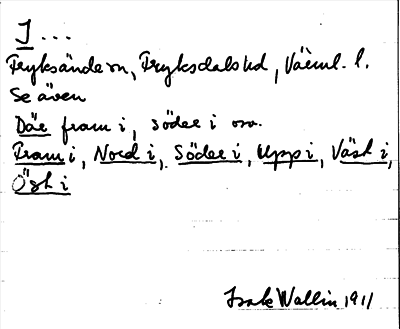 I ...
Fryksände sn, Fryksdals hd, Värml. l.
Se även
Där fram i, söder i osv.
Fram i, Nord i, Söder i, Upp i, Väst i,
Öst i
Isak Wallin 1911